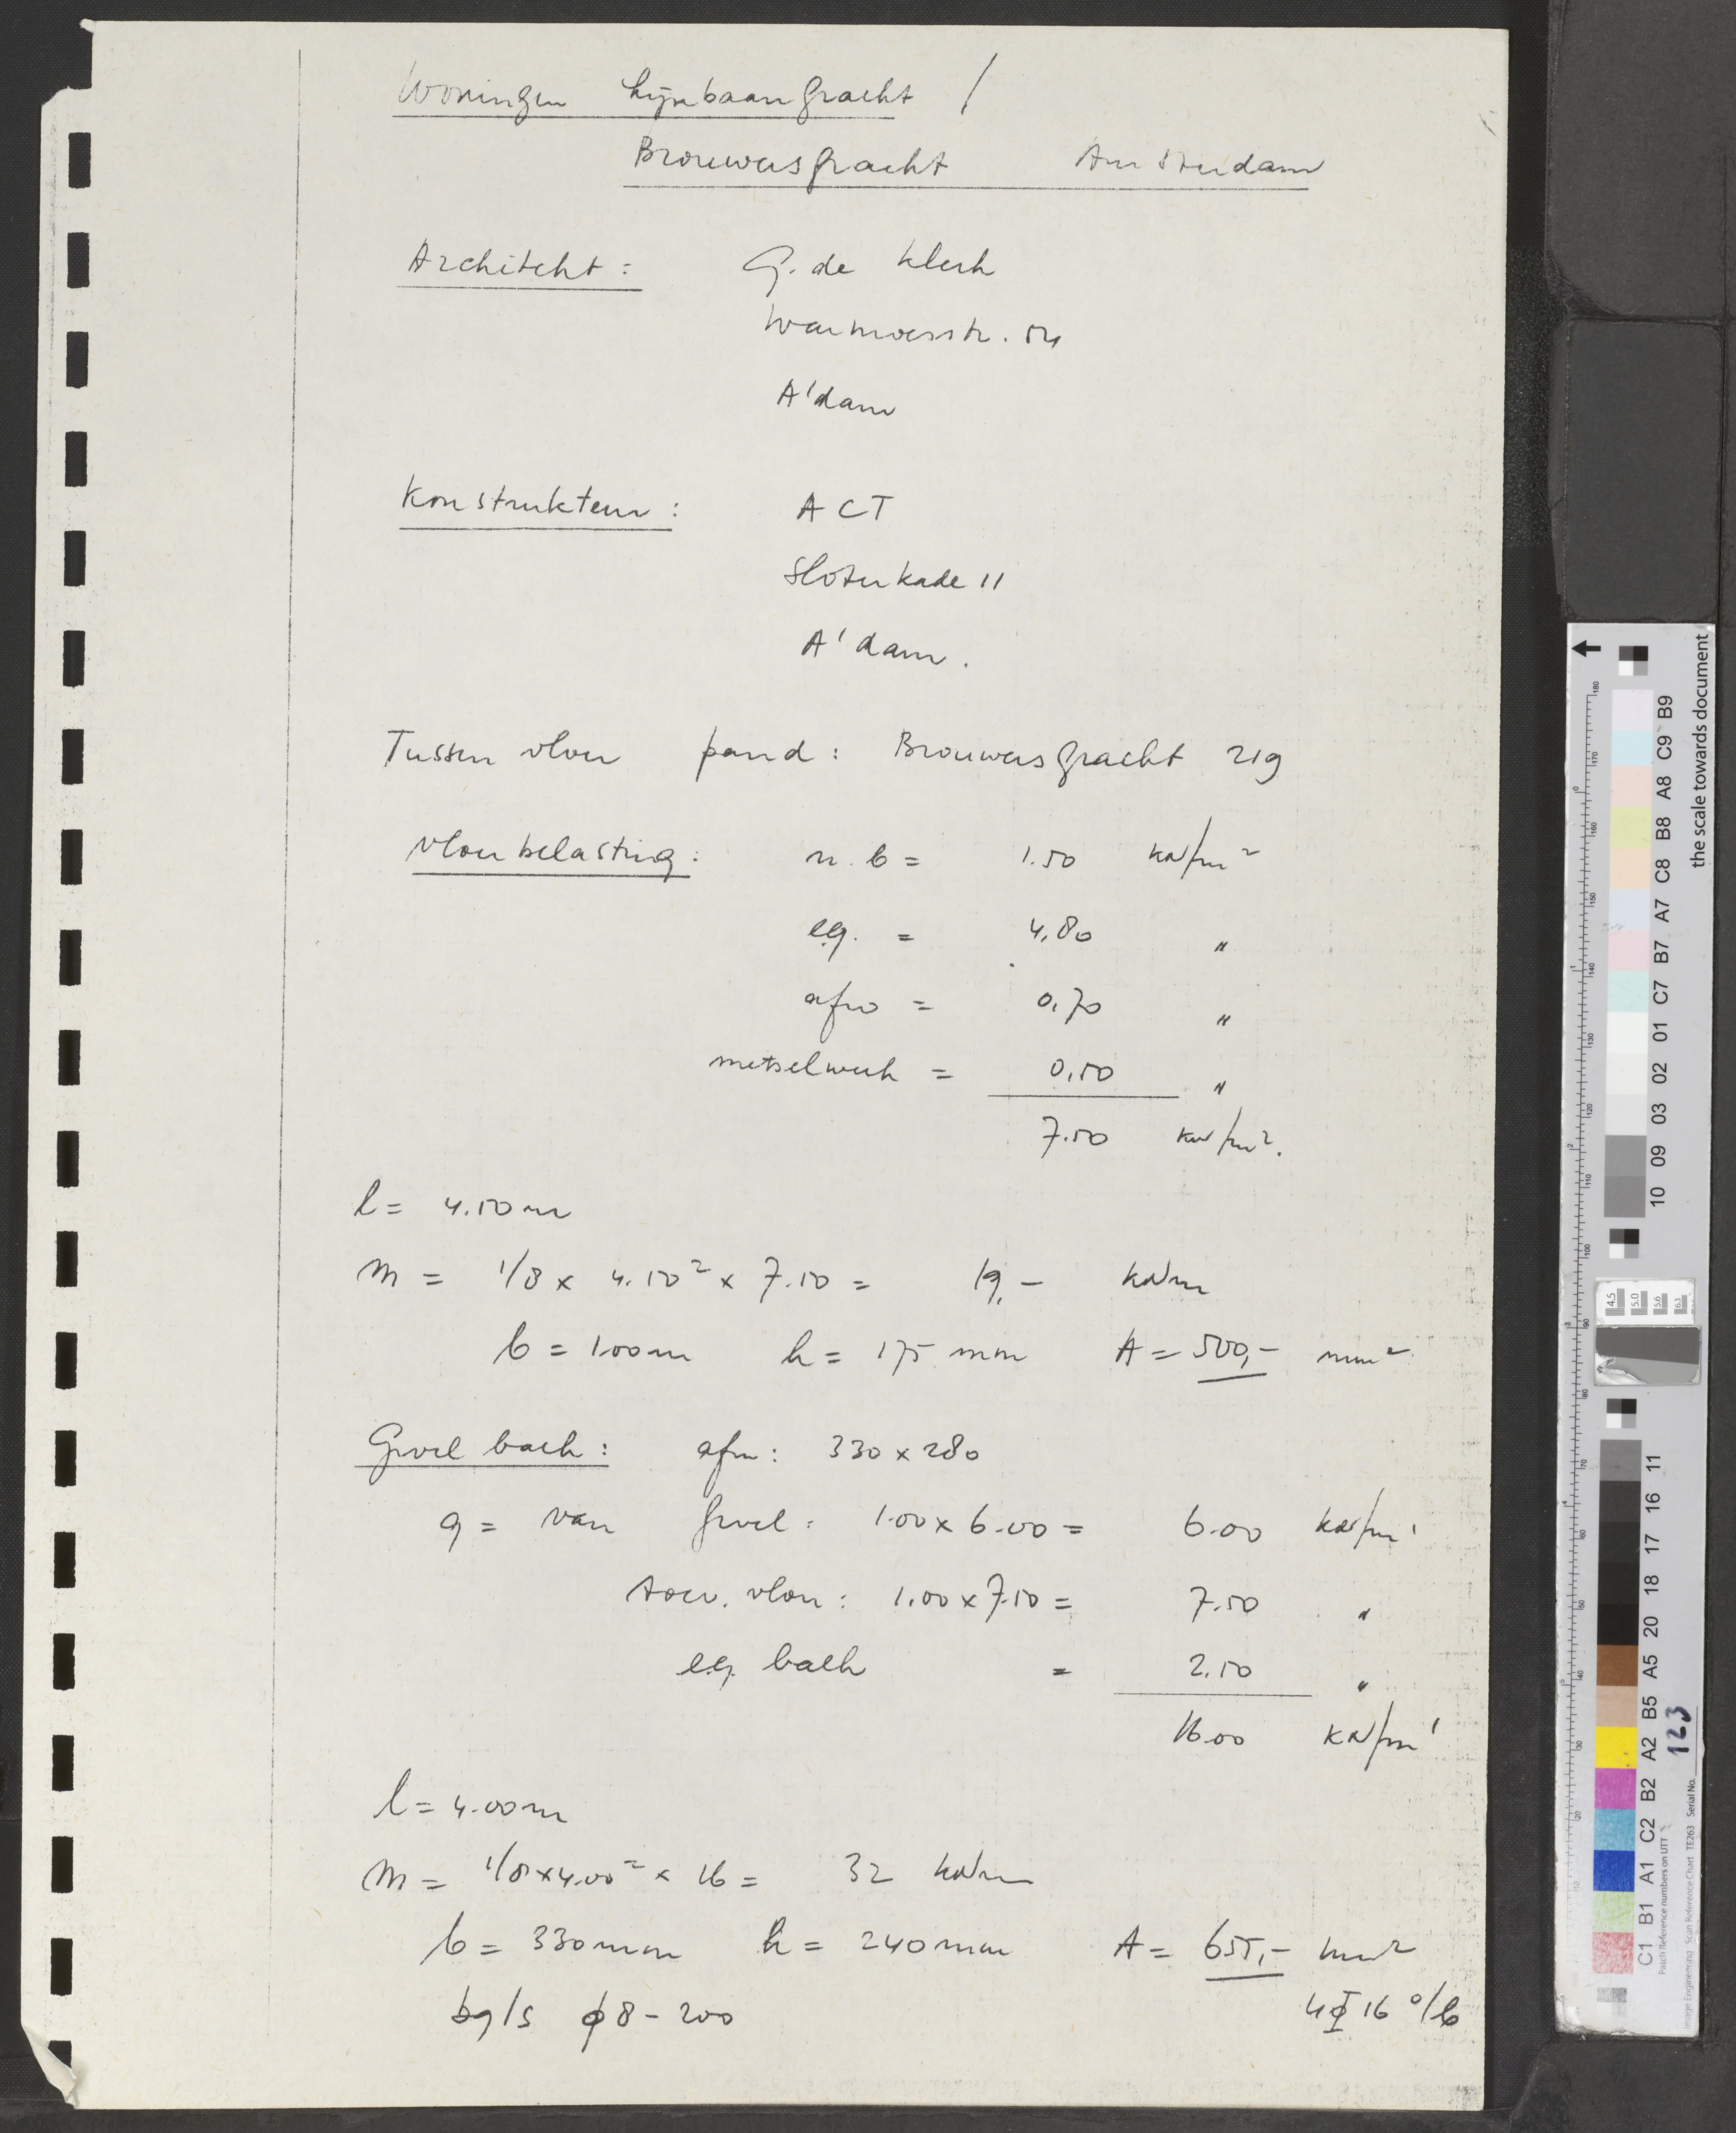 Woningen Lijnbaansgracht /
Brouwersgracht Amsterdam
Architekt: G. de Klerk
Warmoesstr. 54
A'dam
Konstrukteur: ACT
Sloterkade 11
A'dam.
Tussen vloer pand: Brouwersgracht 219
Vloerbelasting: n.b = 1.50 kN/m²
e.g. = 4,80 "
afw = 0,70 "
metselwerk = 0,50 "
7.50 kN/m².
l = 4.50 m
M = 1/8 x 4.50² x 7.50 = 19,- kNm
b = 1.00 m h = 175 mm A = 500,- mm²
Gevel balk: afm: 330 x 280
q = van gevel: 1.00 x 6.00 = 6.00 kN/m'
toev. vloer: 1.00 x 7.50 = 7.50 "
e.g. balk = 2.50 "
16.00 kN/m'
l = 4.00 m
M = 1/8 x 4.00² x 16 = 32 kNm
b = 330 mm h = 240 mm A = 655,- mm²
bgls ϕ8 - 200 4ϕ16 o/b
the scale towards document
B9 C9 A8 B8 C8 A7 B7 C7 01 02 03 09 10
11 16 17 18 20 A5 B5 A2 B2 C2 A1 B1 C1
Image Engineering Scan Reference Chart TE263 Serial No. 123
Patch Reference numbers on UTT